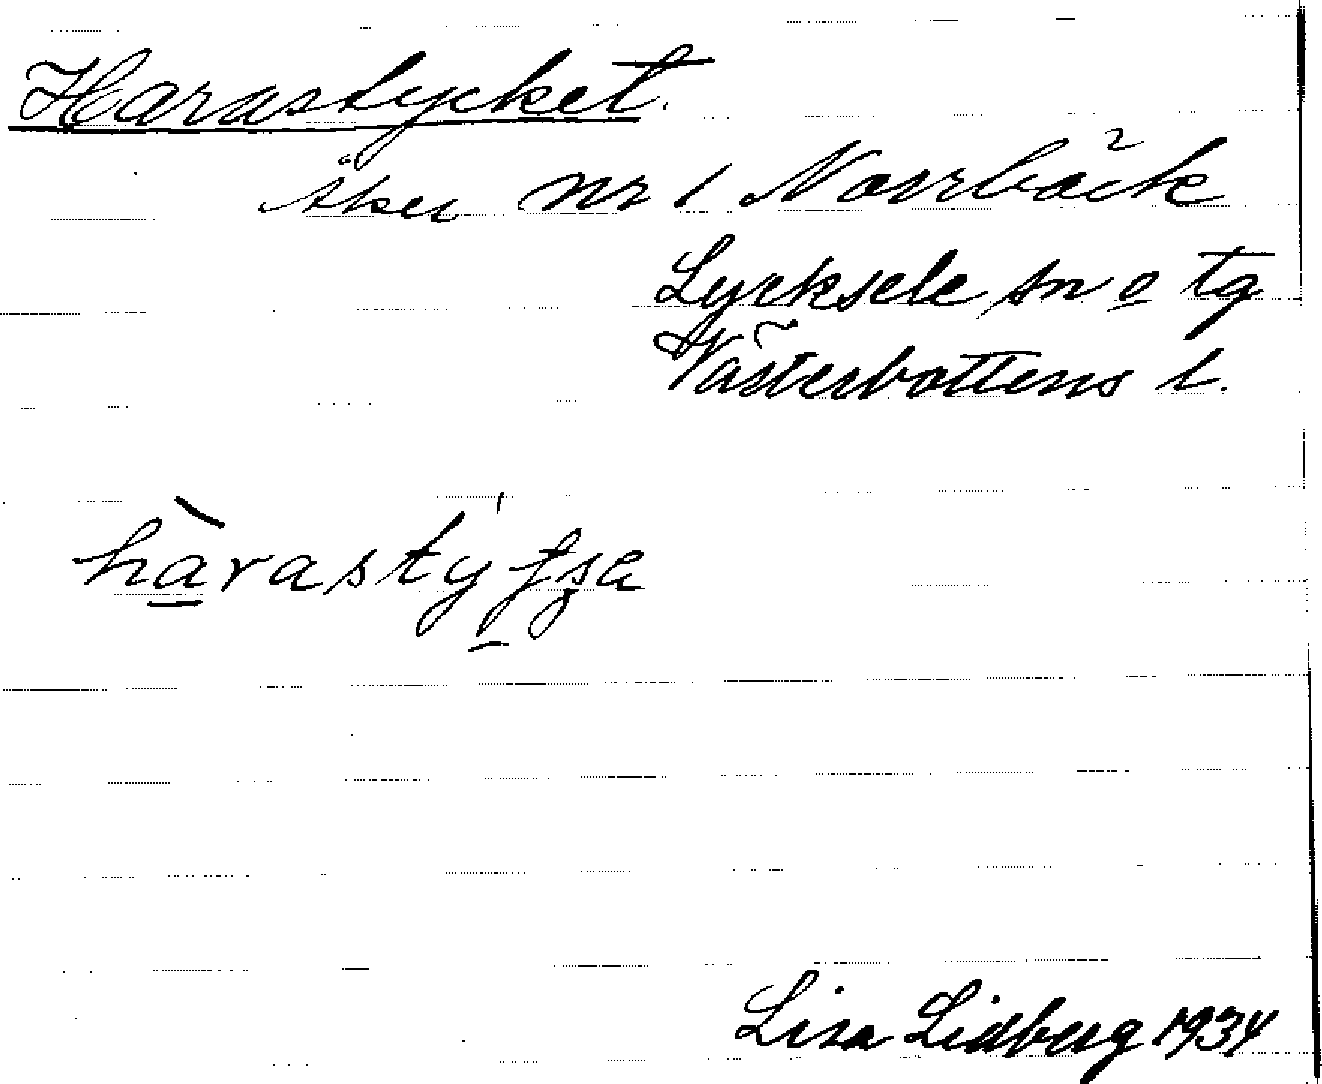 Harastycket.
åker nr 1 Norrbäck
Lycksele sn o tg
Västerbottens l.
hàrastýfsa
Lisa Lidberg 1934